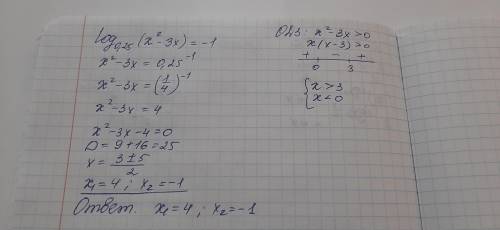 log₀,₂₅(x²-3x)=-1
x²-3x=0,25⁻¹
x²-3x=(1/4)⁻¹
x²-3x=4
x²-3x-4=0
D=9+16=25
x=(3±5)/2
x₁=4; x₂=-1
Ответ. x₁=4; x₂=-1
ОДЗ: x²-3x>0
x(x-3)>0
+ - +
0 3
{x>3
x<0